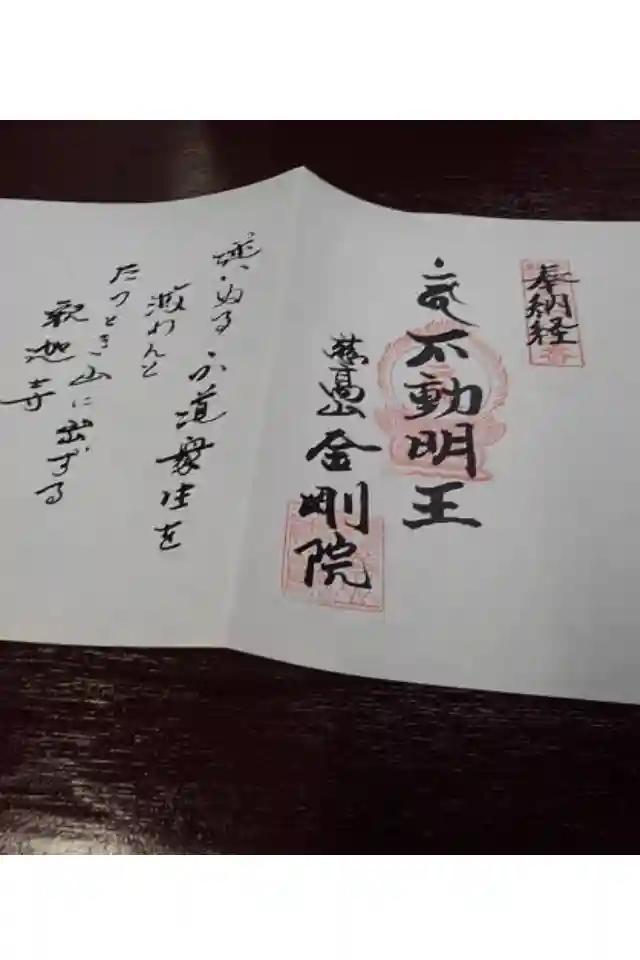 奉納経
不動明王
高山 金剛院
迷いぬる
六道衆生を
わんと
たつとき山に出ずる
釈迦寺